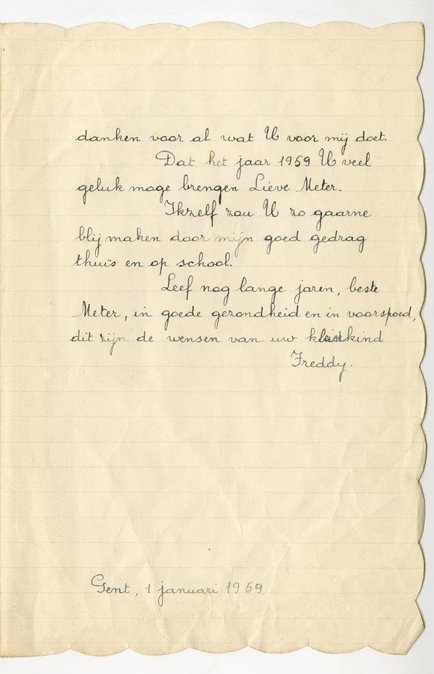 danken voor al wat U voor mij doet.
Dat het jaar 1959 U veel
geluk moge brengen Lieve Meter.
Ikzelf zou U zo gaarne
blij maken door mijn goed gedrag
thuis en op school.
Leef nog lange jaren, beste
Meter, in goede gezondheid en in voorspoed,
dit zijn de wensen van uw kleinkind
Freddy.
Gent, 1 januari 1959